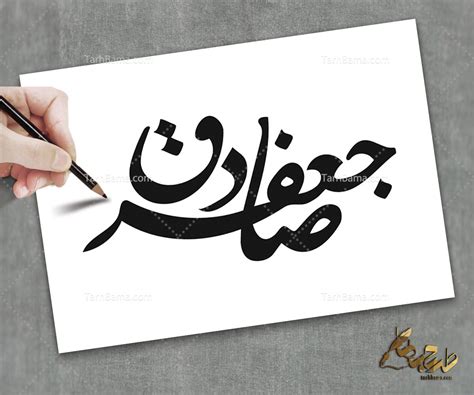 TarhBama.com TarhBama.com
جعفر
صادق
TarhBama.com TarhBama.com
TarhBama.com TarhBama.com
tarhbama.com